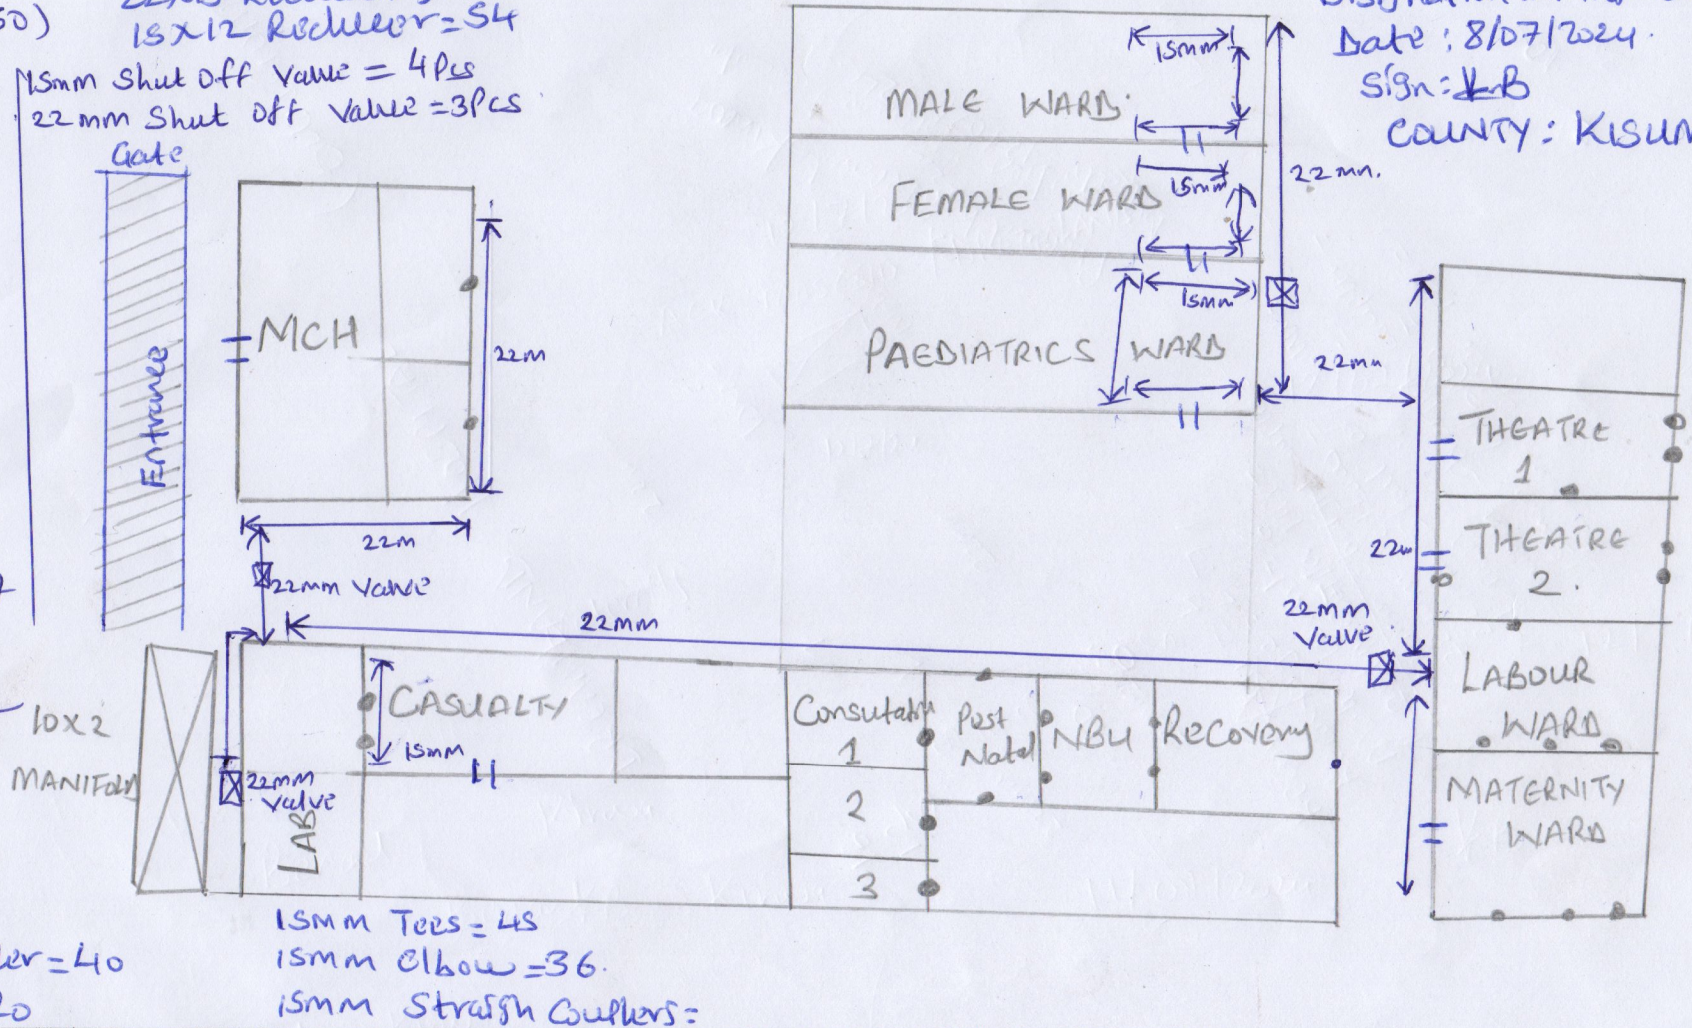 15x12 Reducer=54
15mm Shut Off Valve = 4Pcs
22mm Shut Off Valve =3Pcs
Date : 8/07/2024.
Sign:
COUNTY : KISUM
Gate
Entrance
MCH
22M
22M
22mm Valve
MALE WARD
15mm
FEMALE WARD
15mm
PAEDIATRICS WARD
15mm
22mm.
22mm
THEATRE
1
THEATRE
2.
22m
22mm
Valve
22mm
LABOUR
WARD
MATERNITY
WARD
10x2
MANIFOLD
22mm
Valve
LAB
CASUALTY
15mm
Consutatn
1
2
3
Post
Natal
NBU
Recovery
15mm Tees = 45
15mm Elbow =36.
15mm Straigh Couplers=
er=40
20